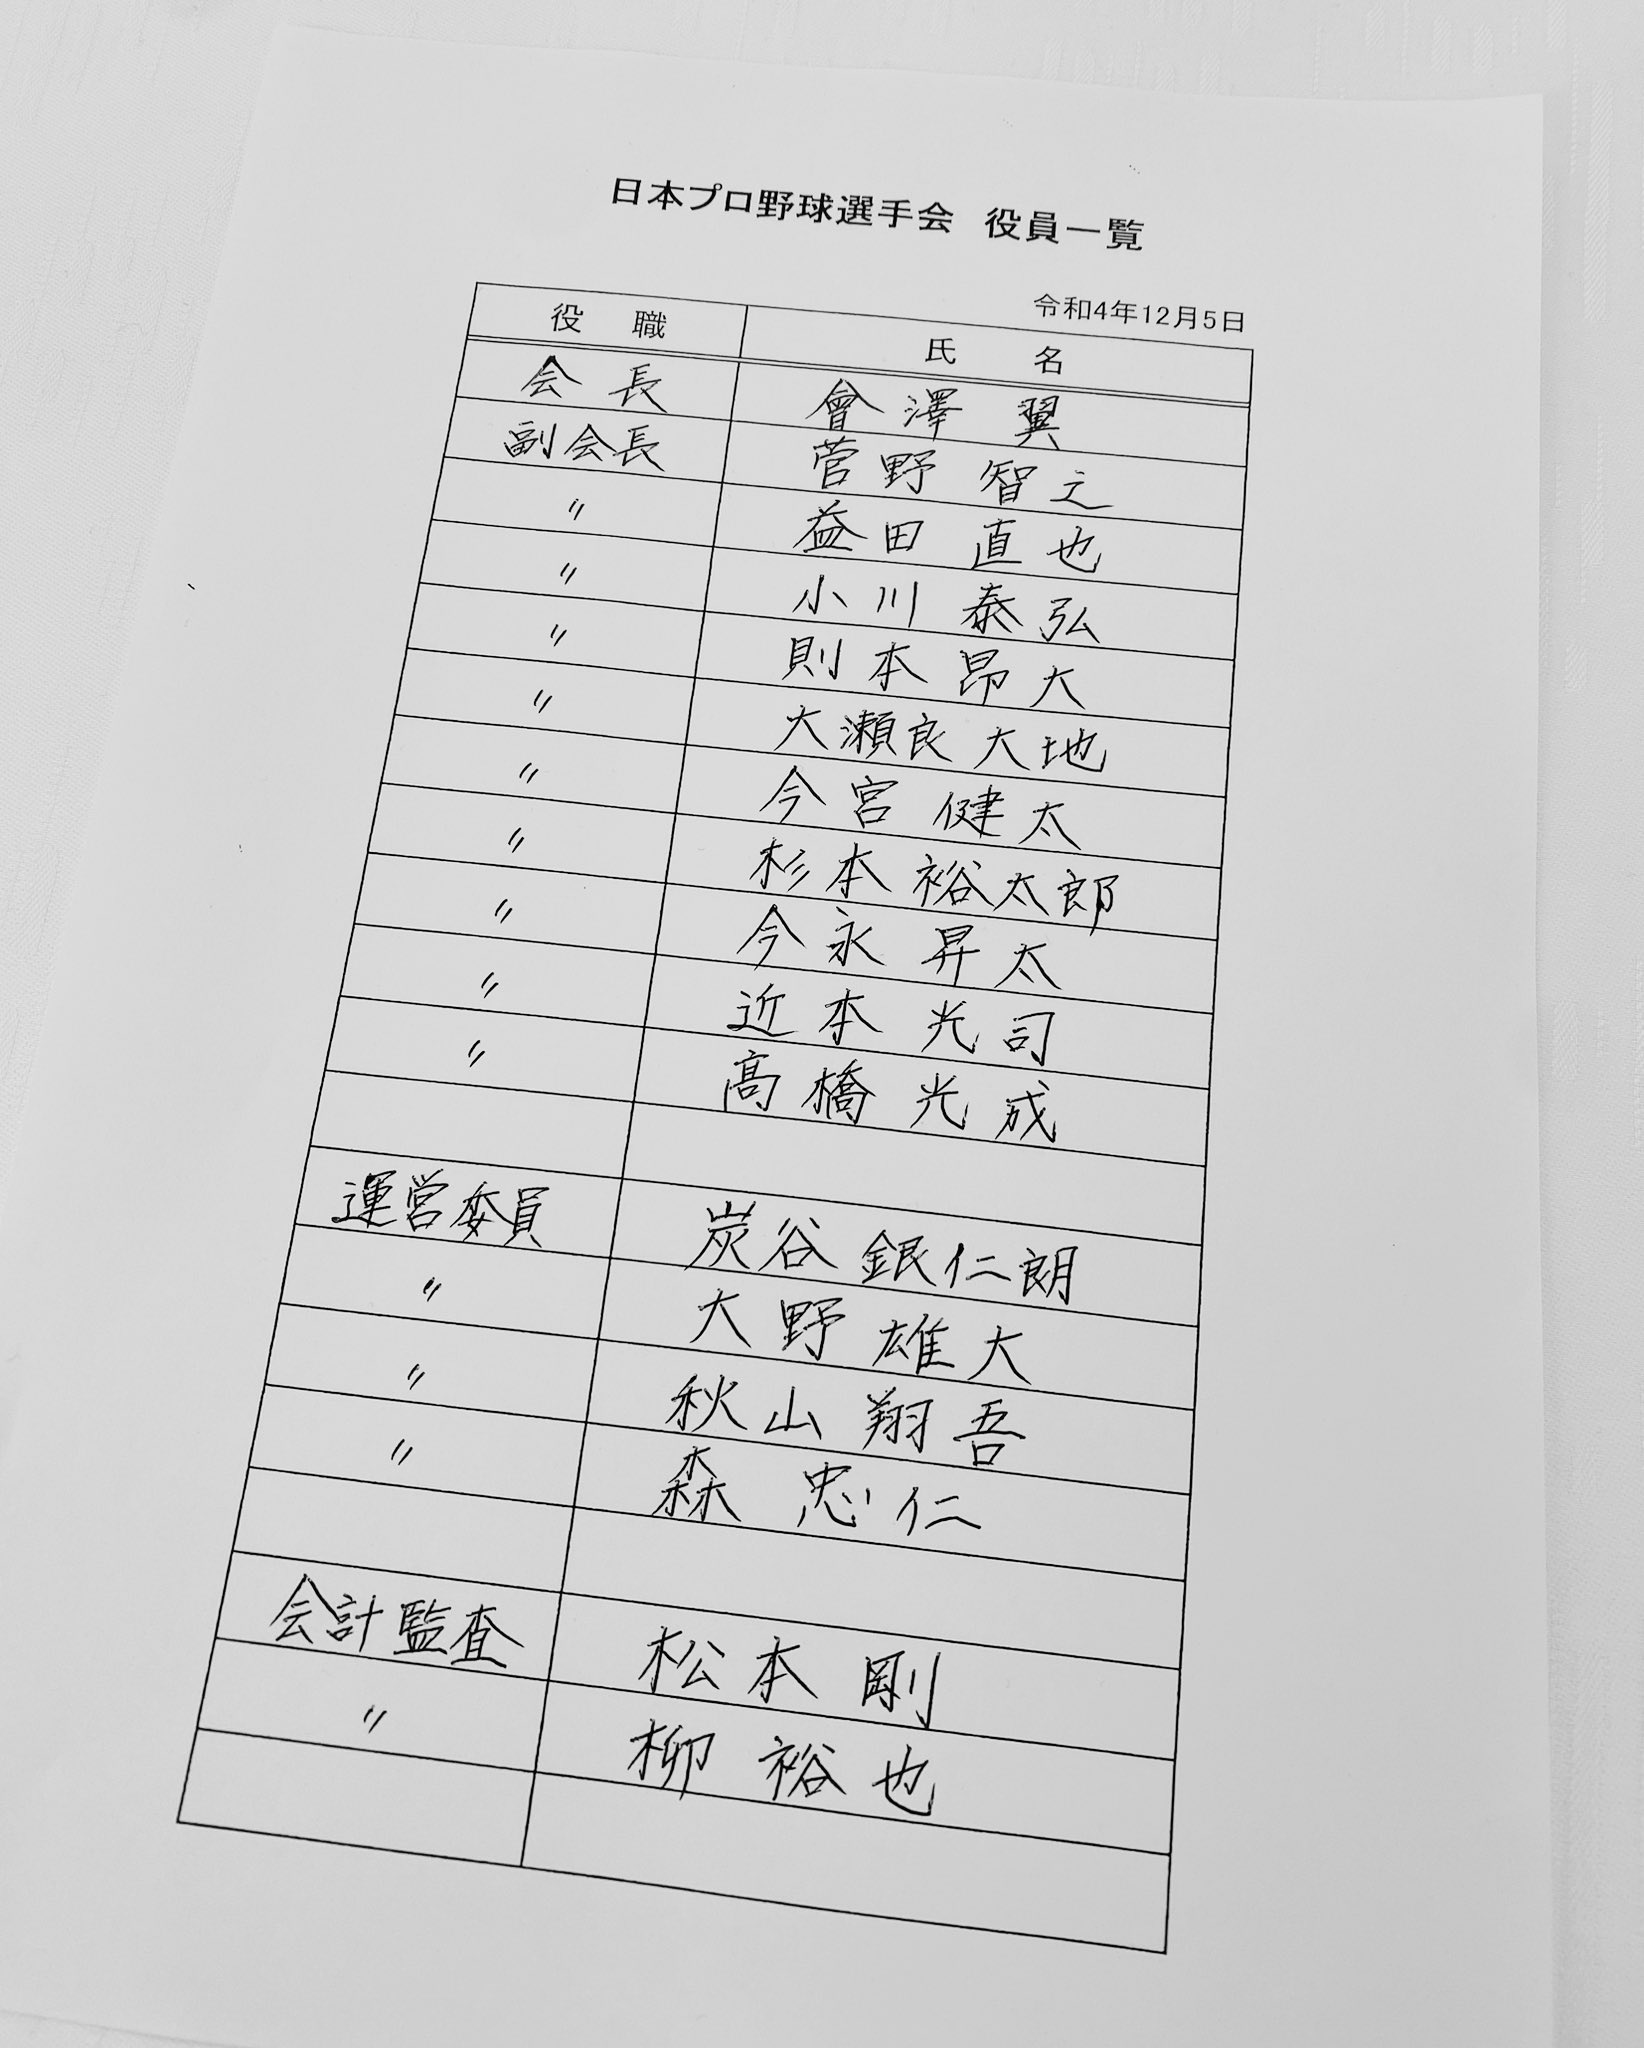 日本プロ野球選手会 役員一覧
令和4年12月5日
役 職 氏 名
会長 會澤 翼
副会長 菅野 智之
〃 益田 直也
〃 小川 泰弘
〃 則本 昂大
〃 大瀬良 大地
〃 今宮 健太
〃 杉本 裕太郎
〃 今永 昇太
〃 近本 光司
〃 髙橋 光成
運営委員 炭谷 銀仁朗
〃 大野 雄大
〃 秋山 翔吾
〃 森 忠仁
会計監査 松本 剛
〃 柳 裕也